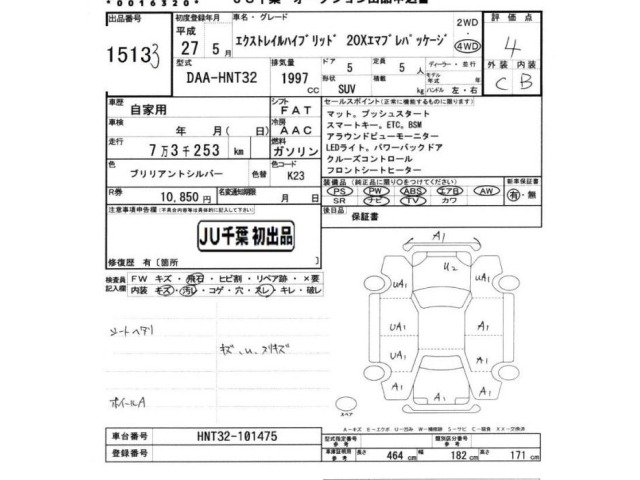 *0016320*
JU千葉 オークション出品申込書
出品番号 初度登録年月 車名・グレード 2WD 評価点
15133 平成 27 5月 エクストレイルハイブリッド 20Xエマブレパッケージ ・ 4WD 4
型式 排気量 ドア 定員 ディーラー・並行 外装 内装
DAA-HNT32 1997 CC 5 5 人 モデル年式 年 C B
形状 積載
SUV kg ハンドル 左・右
車歴 自家用 シフト FAT セールスポイント(正常に機能するものに限ります)
車検 年 月(日) 冷房 AAC マット。プッシュスタート
スマートキー。ETC。BSM
走行 7万3千253 km 燃料 ガソリン アラウンドビューモニター
LEDライト。パワーバックドア
色 色替 色コード クルーズコントロール
ブリリアントシルバー K23 フロントシートヒーター
装備品(純正品に限り○をつけてください) 新車保証書
R券 10,850円 名変通知期限 月 日 PS PW ABS エアB AW 有・無
SR ナビ TV カワ
注意事項申告欄(不具合内容等は具体的に記入して下さい) 後日品 保証書
JU千葉 初出品
修復歴 有〔箇所 〕
検査員記入欄 FW キズ・飛石・ヒビ割・リペア跡・×要
内装 キズ・汚レ・コゲ・穴・スレ・キレ・破レ
シートヘタリ
キズ、U、スリキズ
ホイールA
A1
U2
UA1 UA1
UA1 A1
UA1 A1
A1 A1
A1
スペア
A-キズ E-エクボ U-凹み W-補修跡 S-サビ C-腐食 XX-交換済
車台番号 HNT32-101475 型式指定番号 参考 類別区分番号 参考
登録番号 車庫証明用 参考 長さ 464 cm 幅 182 cm 高さ 171 cm